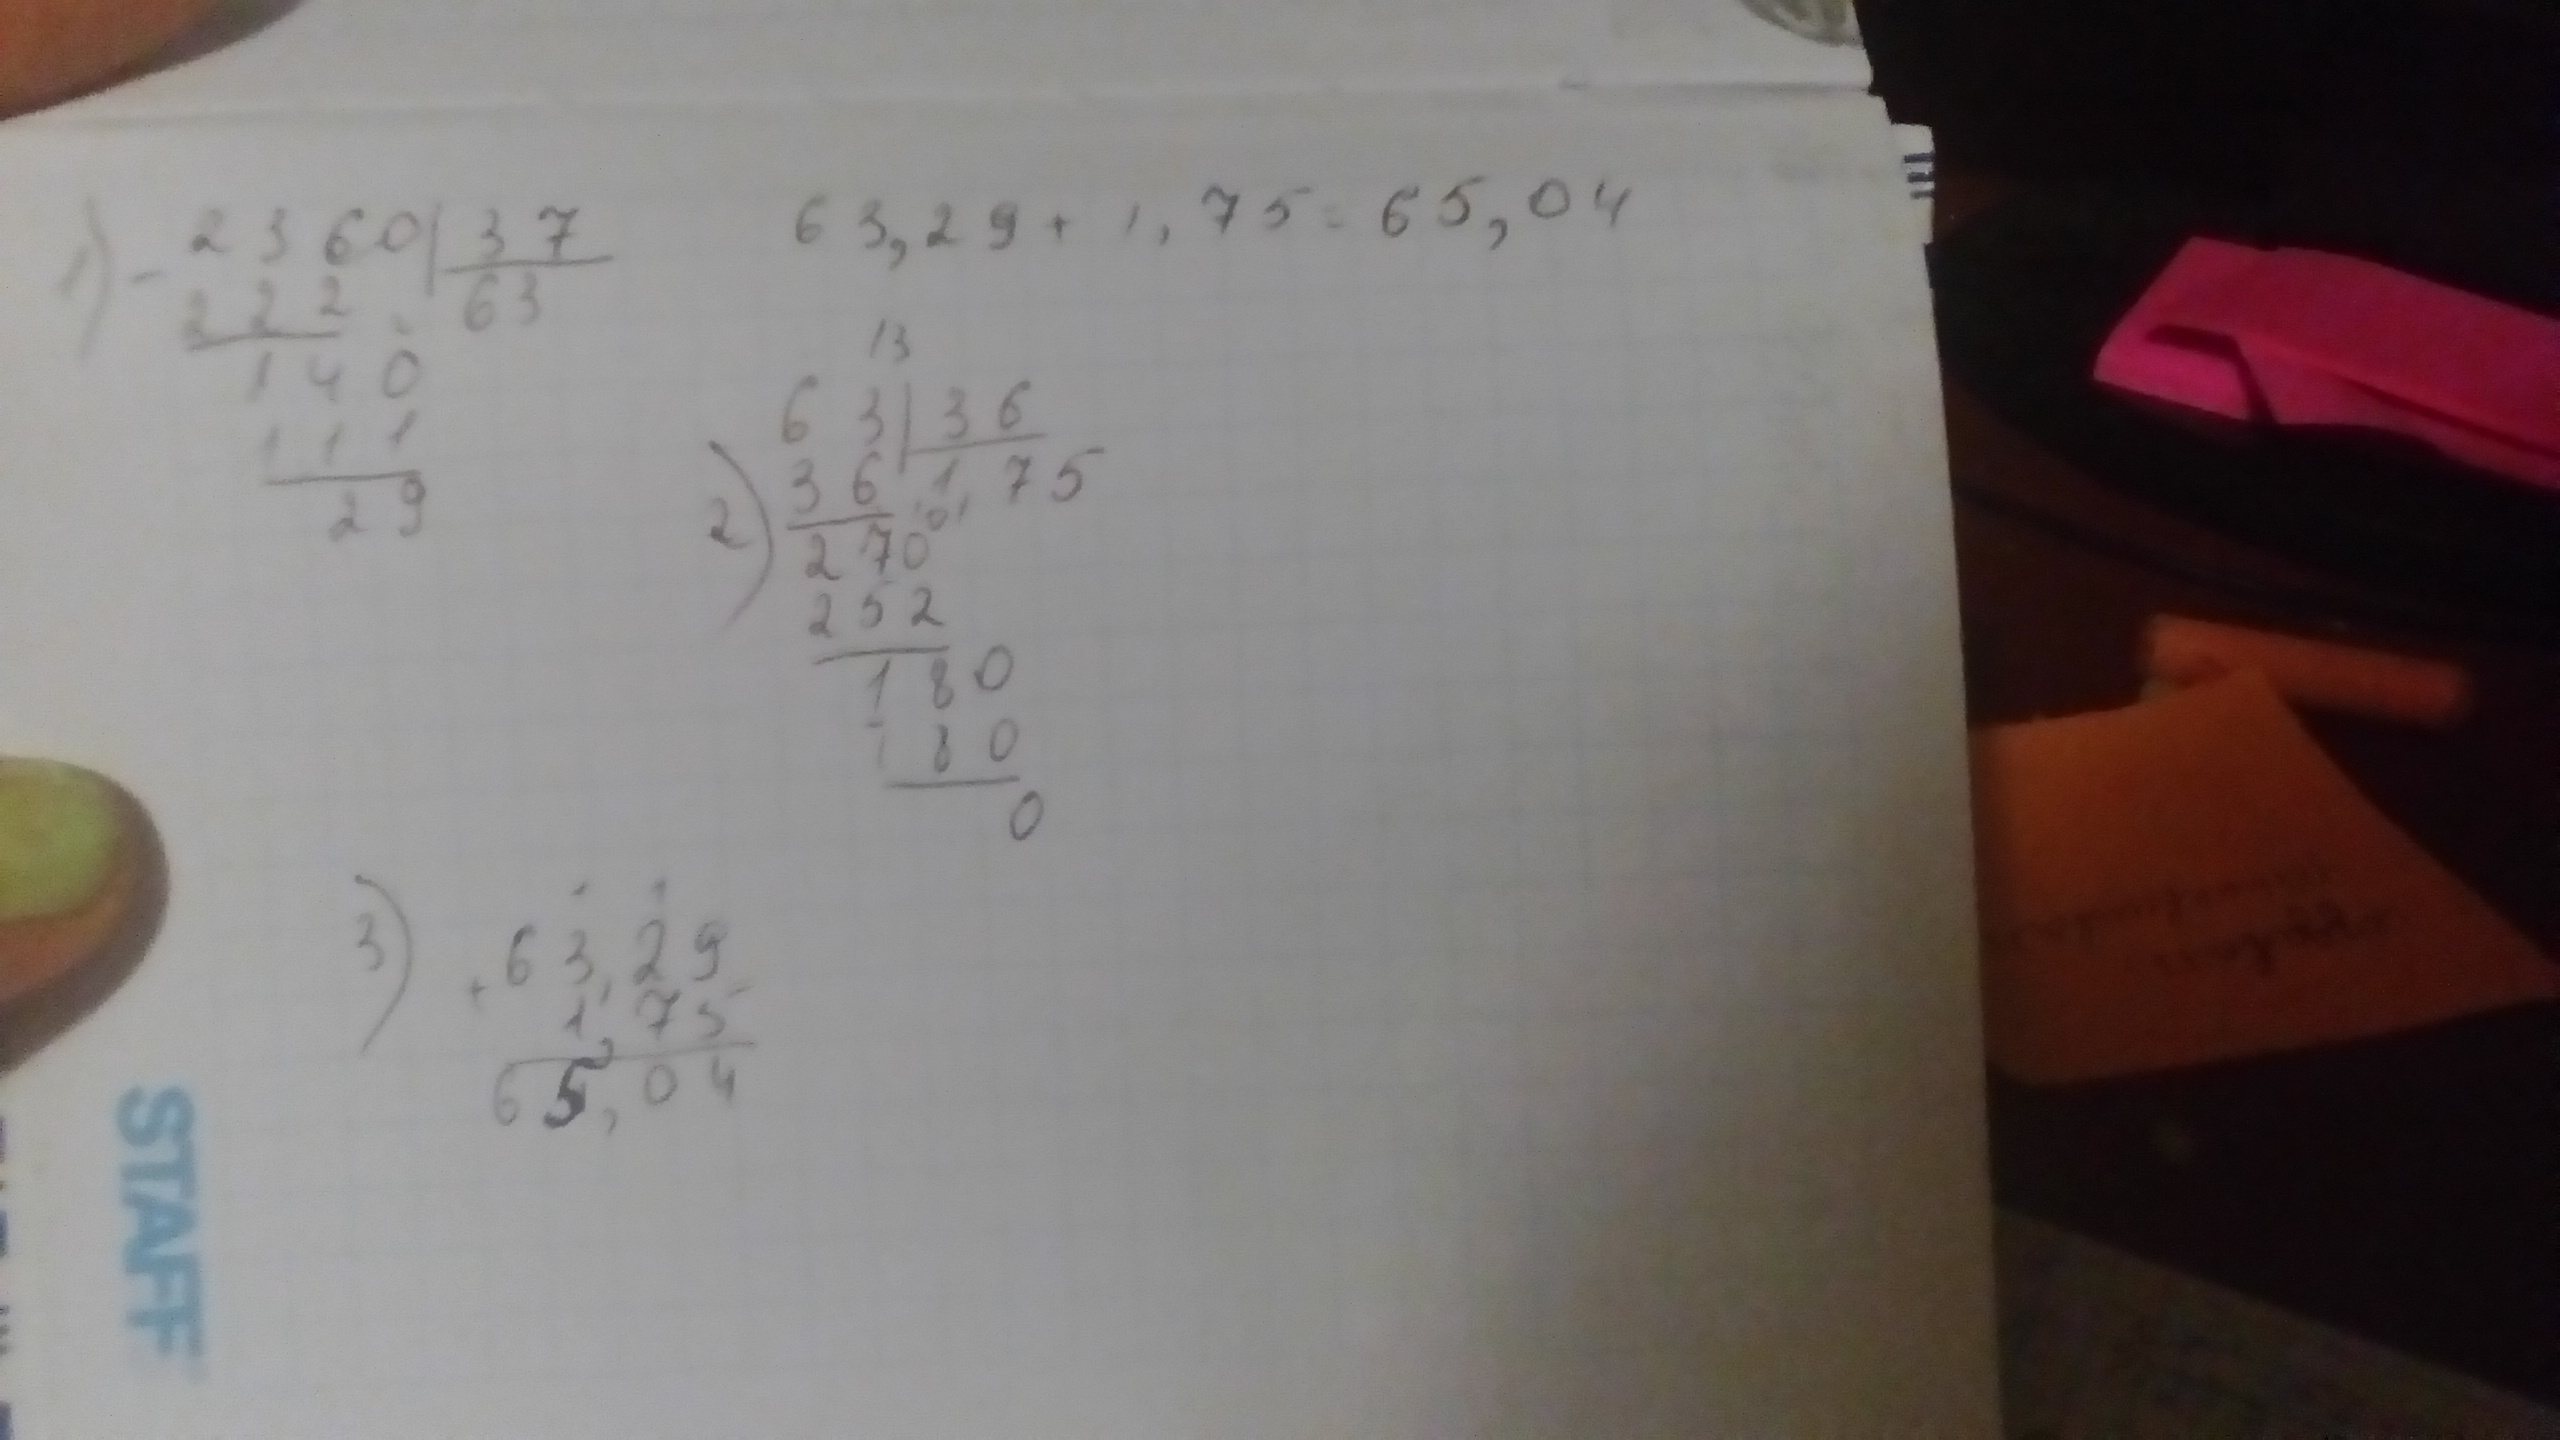 1) - 2360 | 37
222 63
140
111
29
63,29 + 1,75 = 65,04
13
2) 63 | 36
36 1,75
270
252
180
180
0
3) + 63,29
1,75
65,04
STAFF